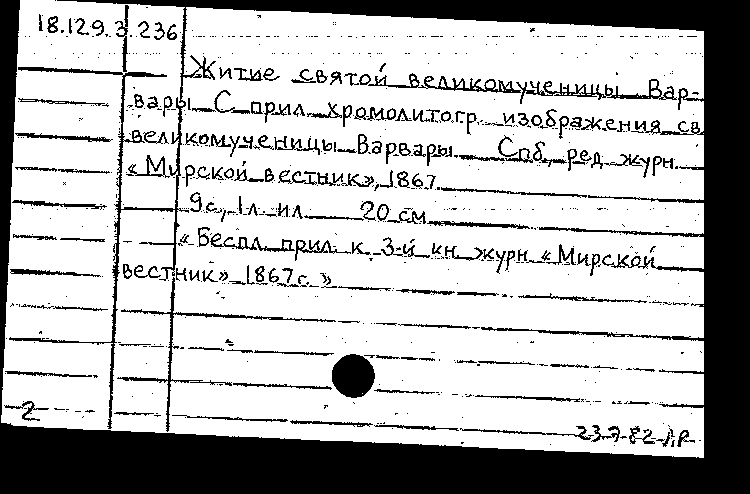 18.129.3.236
Житие святой великомученицы Вар-
вары С прил. хромолитогр. изображения св
великомученицы Варвары Спб, ред журн.
«Мирской вестник», 1867
9с., 1л ил. 20 см
«Беспл. прил к 3-й кн журн «Мирской
вестник» 1867г.»
2
23-7-82